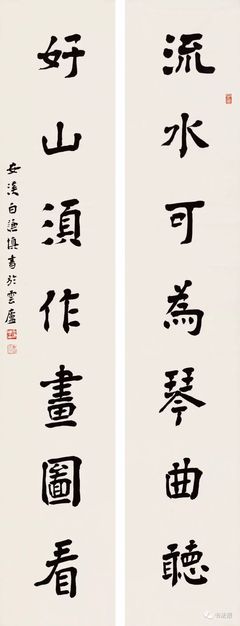 流水可為琴曲聽
好山須作畫圖看
安溪白謙慎書於雲廬
书法谱